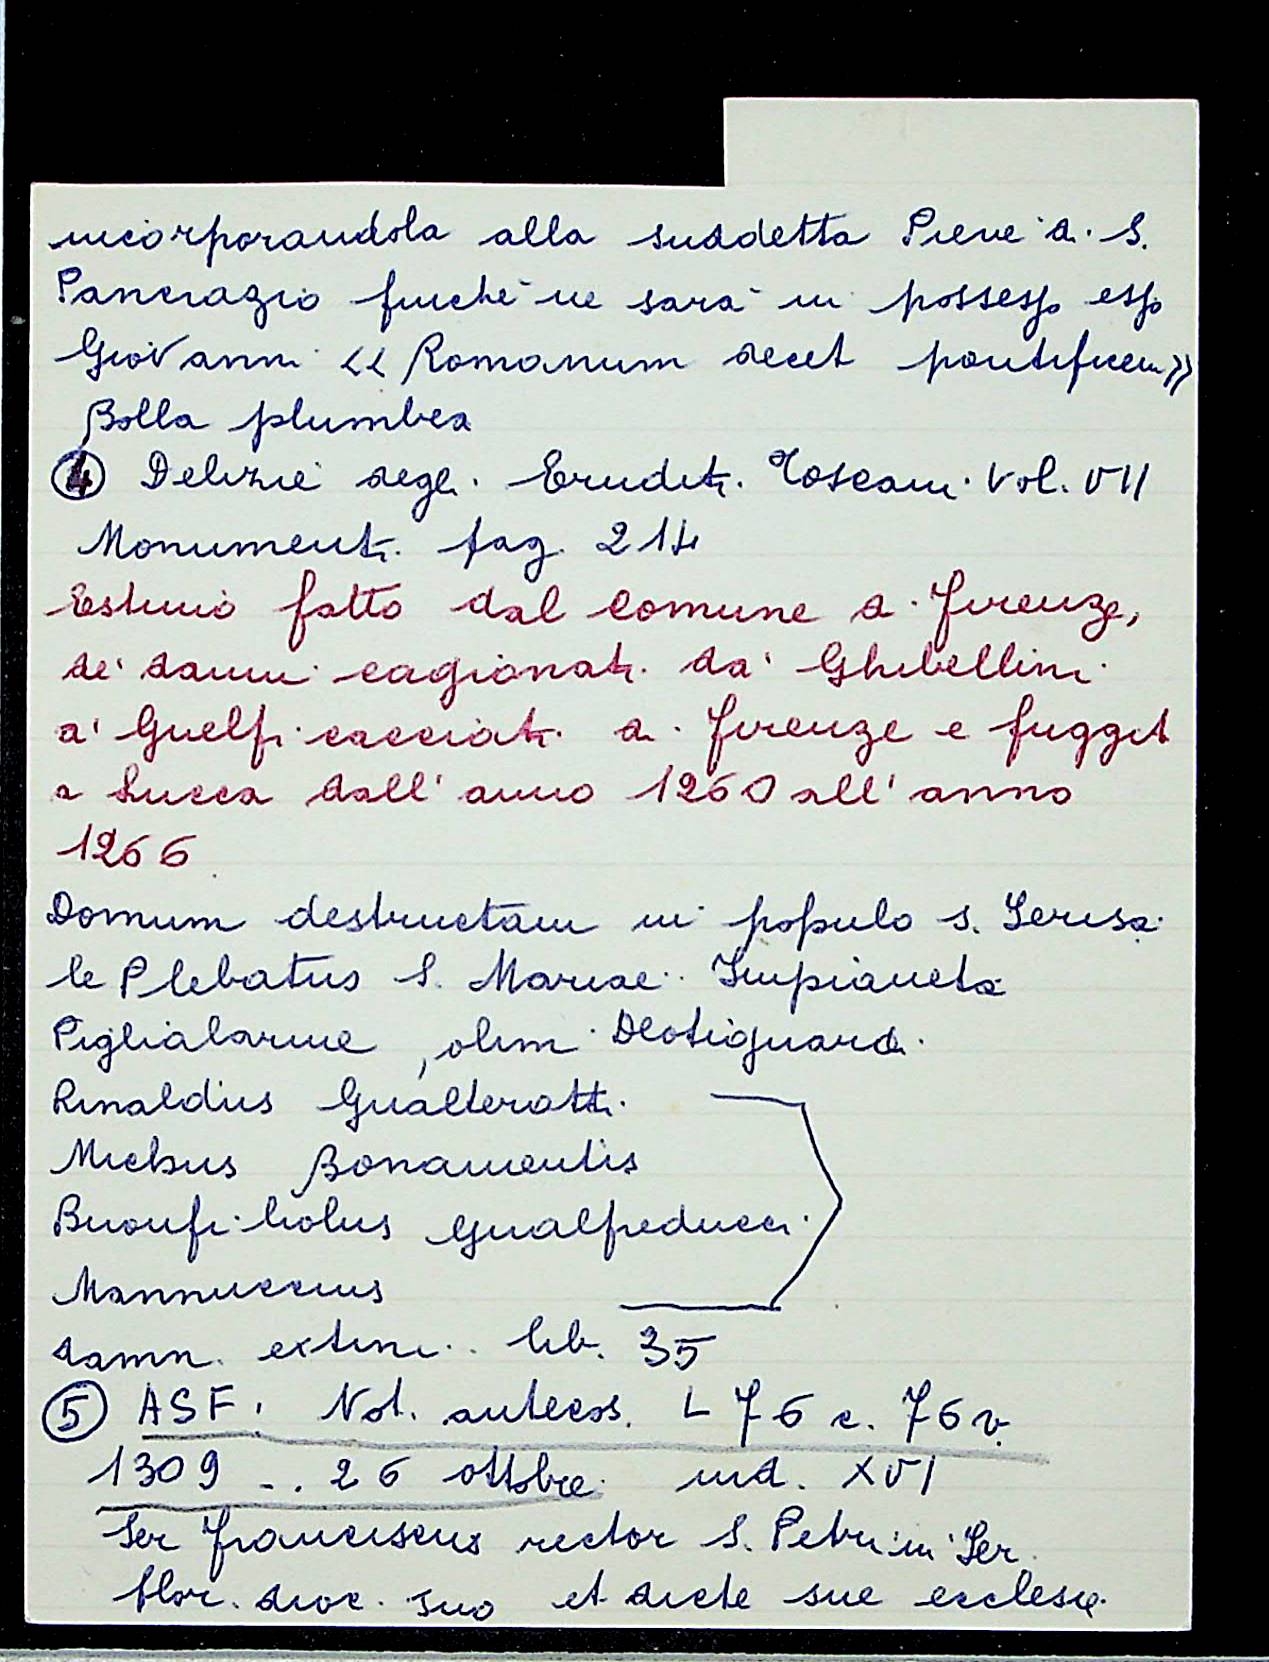 incorporandola alla suddetta Pieve di S.
Pancrazio finchè ne sarà in possesso esso
Giovanni « Romanum decet pontificem »
Bolla plumbea
④ Delizie degli Erudit. Toscani. Vol. VII
Monumenti. pag. 214
Estimo fatto dal comune di Firenze,
de' danni cagionati da' Ghibellini
a' Guelfi cacciati di Firenze e fuggit
a Lucca dall' anno 1260 all' anno
1266
Domum destructam in populo S. Gerisa
le Plebatus S. Mariae Impianeta
Piglialarme, olim Diotiguardi
Rinaldius Gualterotti
Michus Bonamentis
Buonfiliolus Gualfreducci
Mannuccius
damn. extim. lib. 35
⑤ ASF. Not. antecos. L 76 c. 76 v.
1309 - . 26 ottobre ind. XVI
Ser Franciscus rector S. Petri in Ier
flor. dioc. suo et dicte sue ecclesie